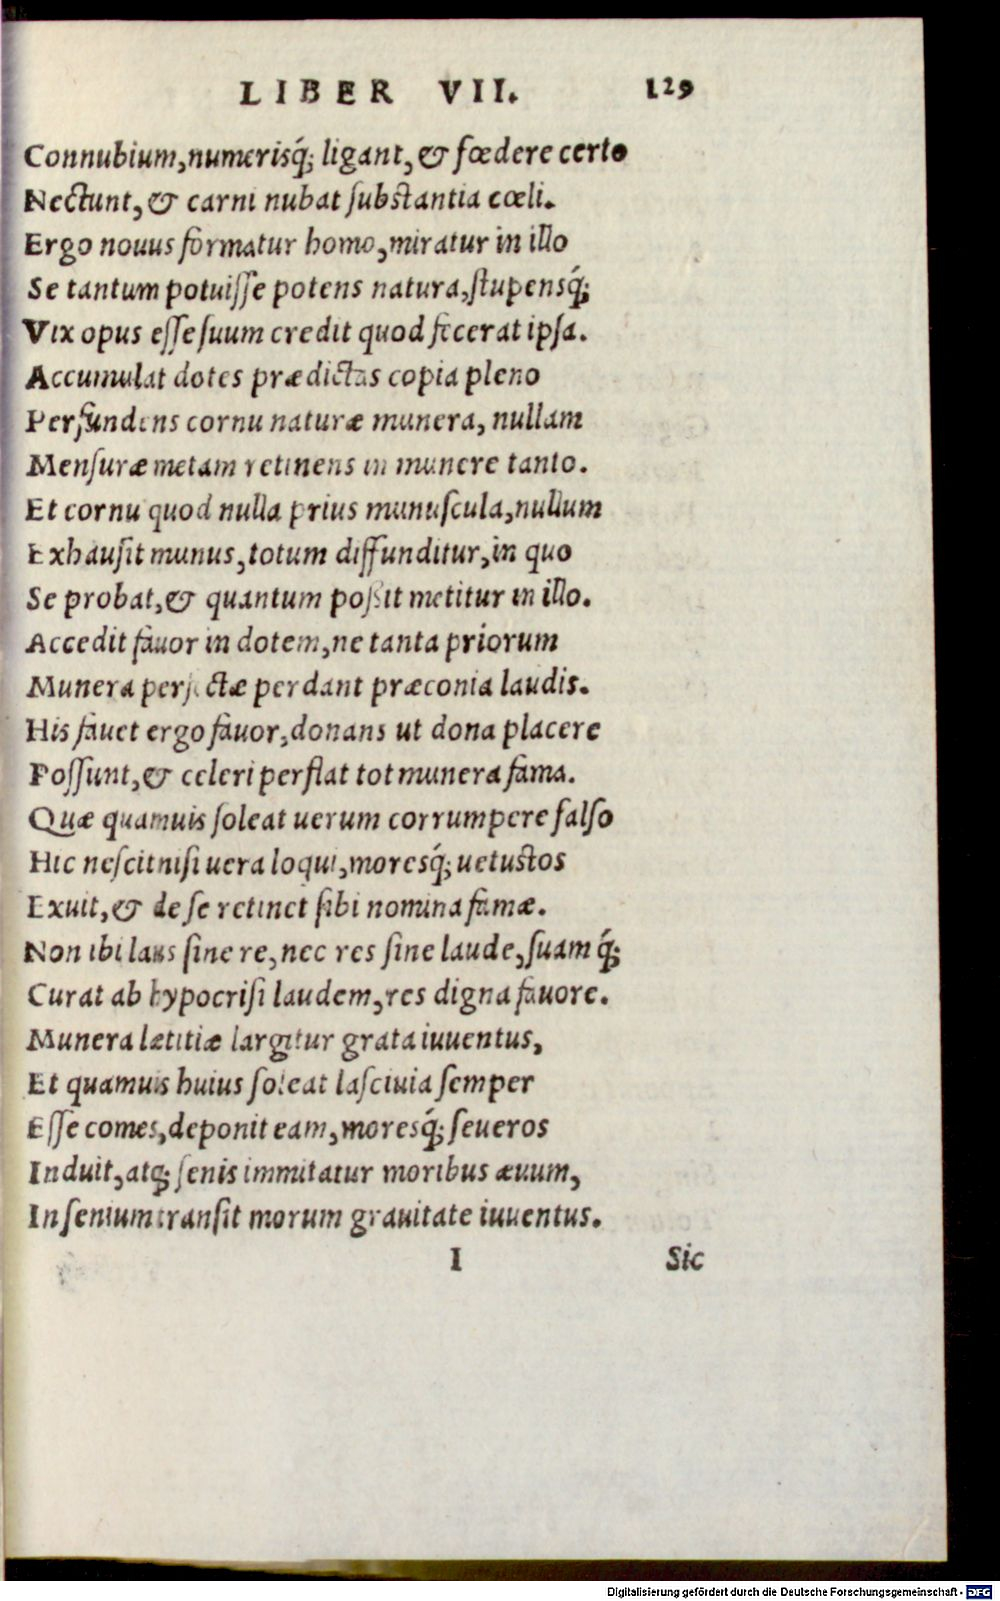 LIBER VII. 129
Connubium,numerisq́; ligant,& fœdere certo
Nectunt,& carni nubat ſubstantia cœli.
Ergo nouus formatur homo,miratur in illo
Se tantum potuiſſe potens natura,ſtupensq́;
Vix opus eſſe ſuum credit quod fecerat ipſa.
Accumulat dotes prædictas copia pleno
Perfundens cornu naturæ munera, nullam
Menſuræ metam retinens in munere tanto.
Et cornu quod nulla prius munuſcula,nullum
Exhauſit munus,totum diffunditur,in quo
Se probat,& quantum poßit metitur in illo.
Accedit fauor in dotem,ne tanta priorum
Munera perfectæ perdant præconia laudis.
His fauet ergo fauor,donans ut dona placere
Poſſunt,& celeri perflat tot munera fama.
Quæ quamuis ſoleat uerum corrumpere falſo
Hic neſcit niſi uera loqui,moresq́; uetustos
Exuit,& de ſe retinet ſibi nomina famæ.
Non ibi laus ſine re,nec res ſine laude,ſuam q́;
Curat ab hypocriſi laudem,res digna fauore.
Munera lætitiæ largitur grata iuuentus,
Et quamuis huius ſoleat laſciuia ſemper
Eſſe comes,deponit eam,moresq́; ſeueros
Induit,atq; ſenis immitatur moribus æuum,
In ſenium tranſit morum grauitate iuuentus.
I Sic
Digitalisierung gefördert durch die Deutsche Forschungsgemeinschaft - DFG